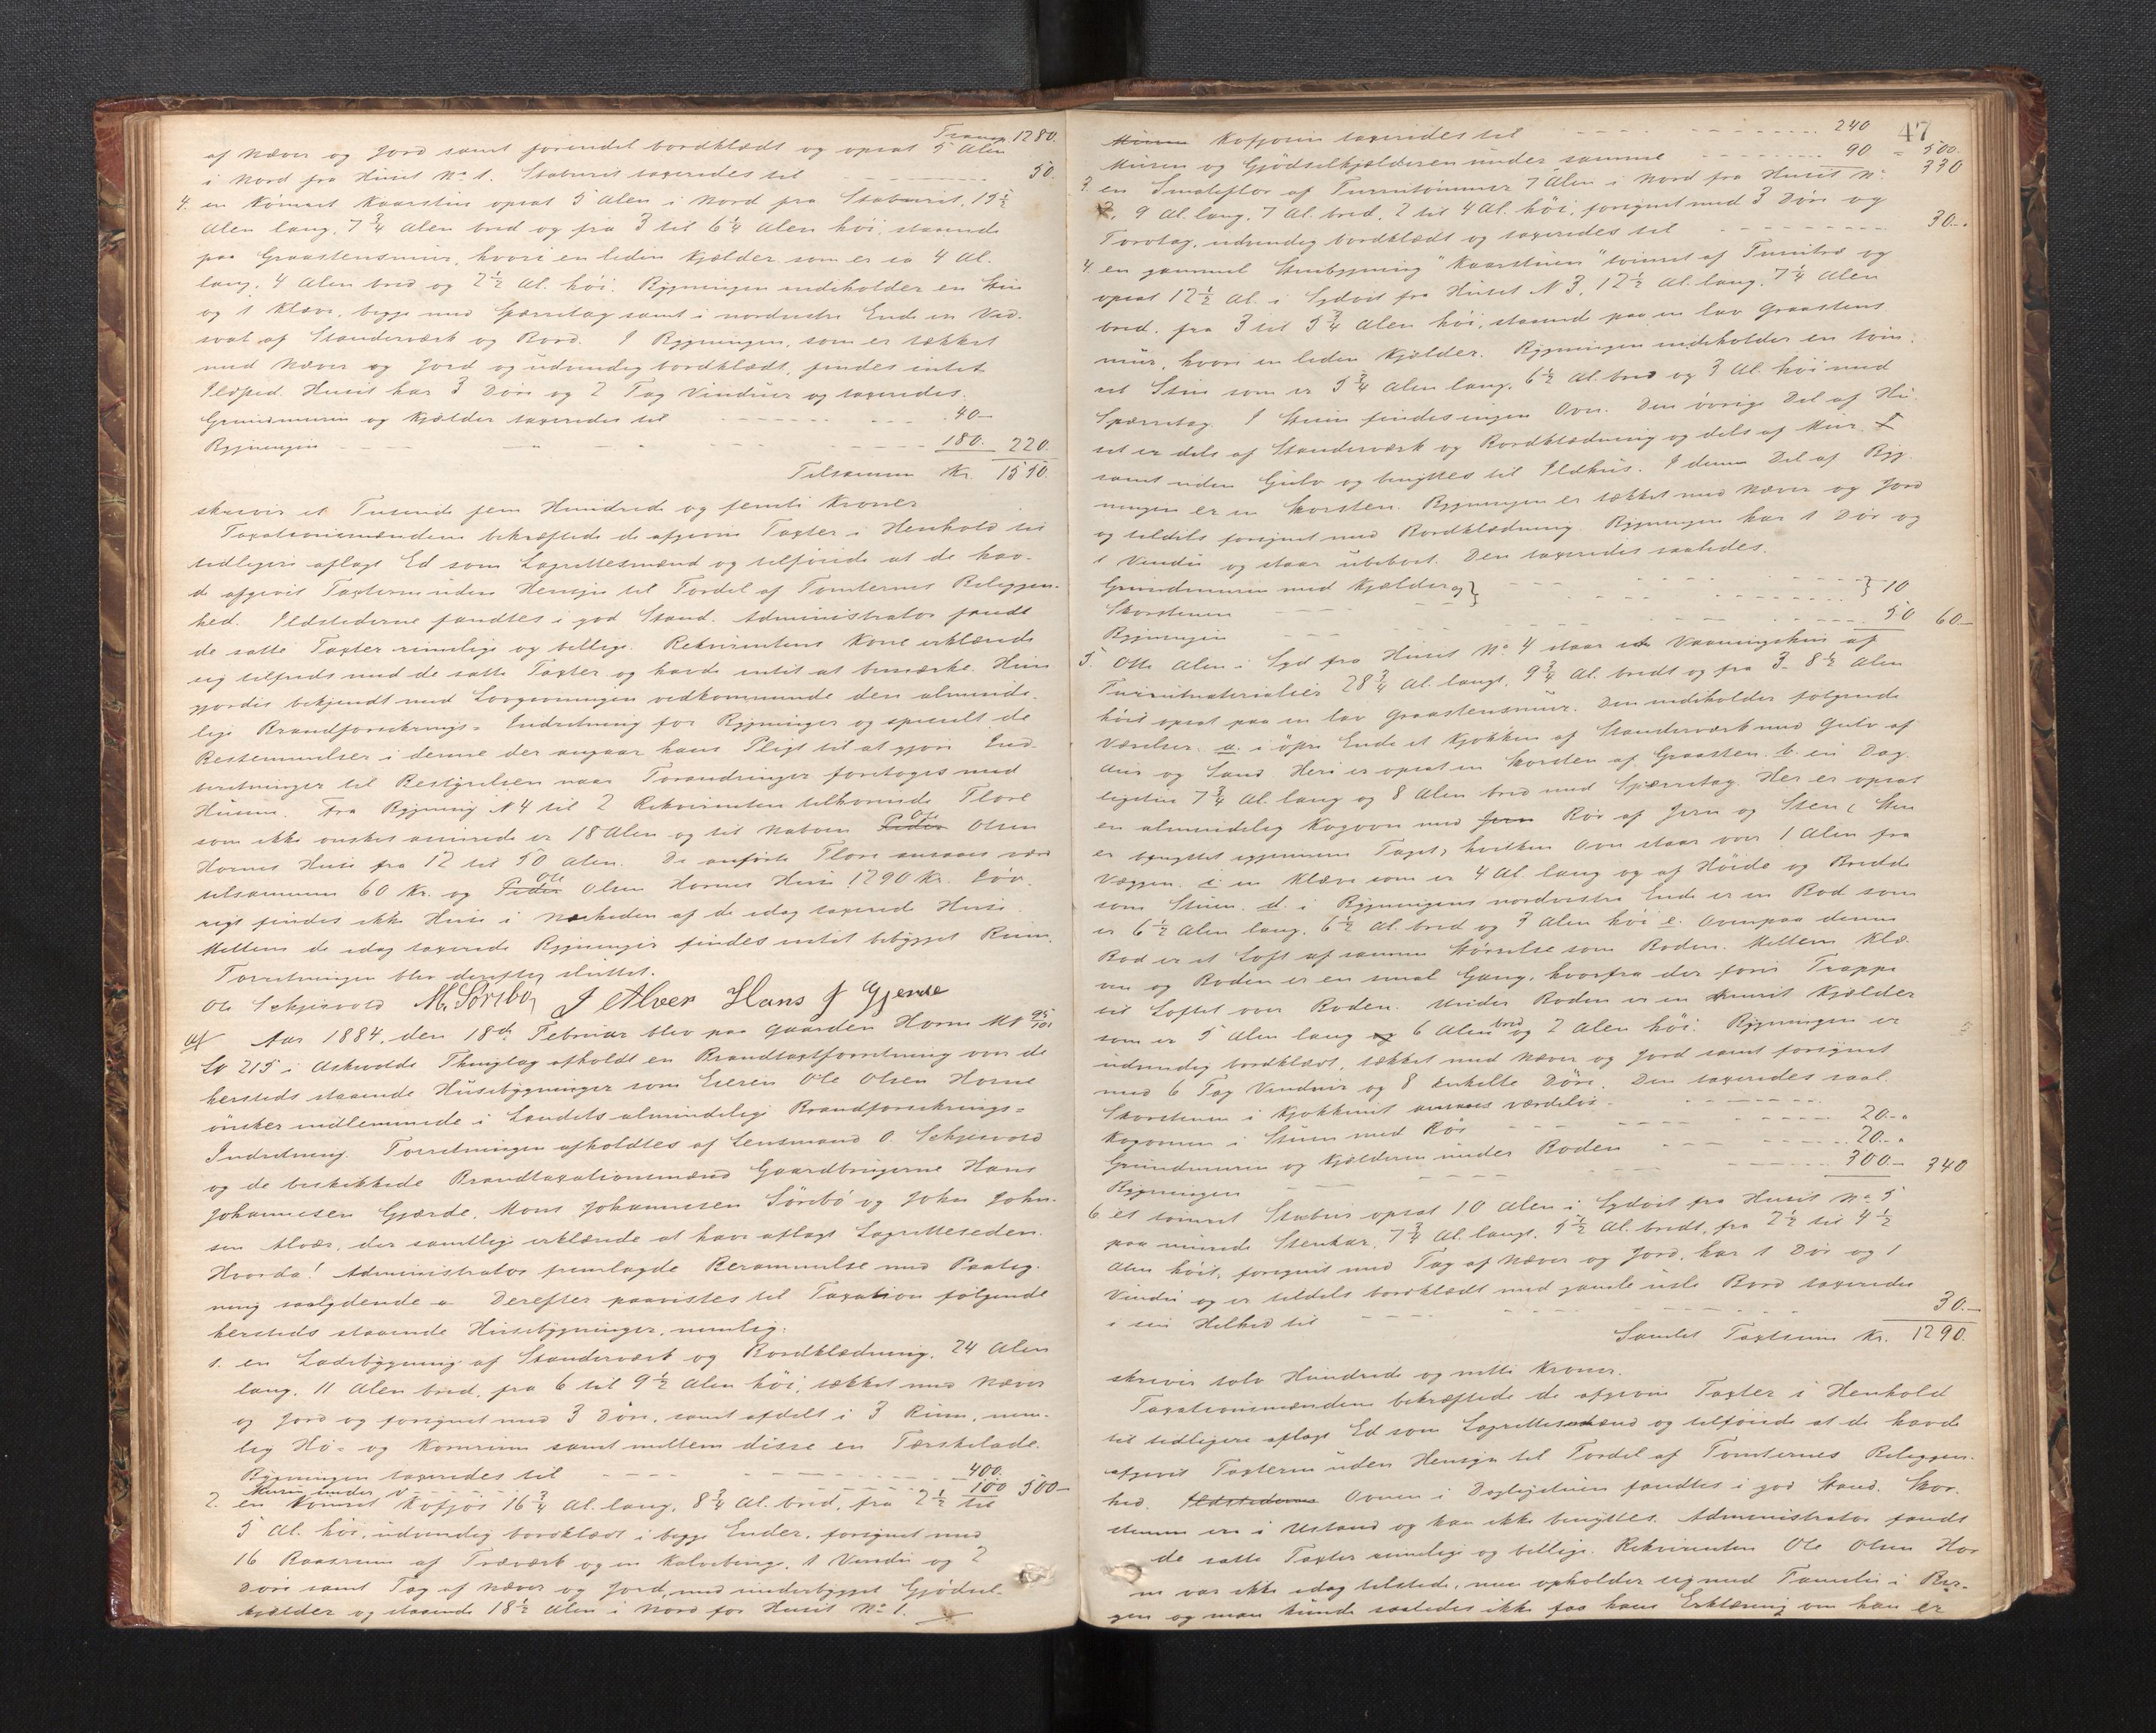 Transp. 1280.
af Næver og Jord samt forindet bordklædt og opsat 5 Alen
i Nord fra Huset No 1. Staburet taxeredes til 50.
4. en tømret Kaarstue opsat 5 Alen i Nord fra Staburet, 15½
Alen lang, 7¾ Alen bred og fra 3 til 6¼ Alen høi, staaende
paa Graastensmur, hvori en liden Kjælder som er ca 4 Al.
lang, 4 Alen bred og 2½ Al. høi. Bygningen indeholder en Stue
og 1 Kleve, begge med Sperretag samt i nordvestre Ende en Ved-
sval af Standerværk og Bord. I Bygningen, som er tækket
med Næver og Jord og udvendig bordklædt, findes intet
Ildsted. Huset har 3 Døre og 2 Fag Vinduer og taxeredes.
Grundmuren og Kjælder taxeredes til 40-
Bygningen 180. 220.
Tilsammen Kr. 1550.
skriver et Tusende fem Hundrede og femti Kroner
Taxationsmændene bekræftede de afgivne Taxter i Henhold til
tidligere aflagt Ed som Lagrettesmænd og tilføiede at de hav-
de afgivet Taxterne uden Hensyn til Fordel af Tomternes Beliggen-
hed. Ildstederne fandtes i god Stand. Administrator fandt
de satte Taxter rimelige og billige. Rekvirentens Kone erklærede
sig tilfreds med de satte Taxter og havde intet at bemærke. Hun
gjordes bekjendt med Lovgivningen vedkommende den alminde-
lige Brandforsikrings-Indretning for Bygninger og specielt de
Bestemmelser i denne der angaar hans Pligt til at gjøre Ind-
beretninger til Bestyrelsen naar Forandringer foretages med
Husene. Fra Bygning N 4 til 2 Rekvirenten tilhørende Flore
som ikke ønskes assurerede er 18 Alen og til Naboen Peder Ole Olsen
Hornes Huse fra 12 til 50 Alen. De anførte Flore ansaaes værd
tilsammen 60 Kr. og Peder Ole Olsen Hornes Huse 1290 Kr. Iøv-
rigt findes ikke Huse i Nærheden af de idag taxerede Huse.
Mellem de idag taxerede Bygninger findes intet bebygget Rum.
Forretningen blev derefter sluttet.
Ole Schjesvold M. Sørebø J Alver Hans J Gjerde
Aar 1884, den 18de Februar blev paa Gaarden Horne M N 95/101
Lb 215 i Askvolds Thinglag afholdt en Brandtaxtforretning over de
hersteds staaende Husebygninger som Eieren Ole Olsen Horne
ønsker indlemmede i Landets almindelige Brandforsikrings-
Indretning. Forretningen afholdtes af Lensmand O. Schjesvold
og de beskikkede Brandtaxationsmænd Gaardbrugerne Hans
Johannesen Gjærde, Mons Johannesen Sørebø og John John-
sen Alver, der samtlige erklærede at have aflagt Lagretteseden.
Hvorda! Administrator fremlagde Berammelse med Paateg-
ning saalydende a Derefter paavistes til Taxation følgende
hersteds staaende Husebygninger, nemlig:
1. en Ladebygning af Standerværk og Bordklædning, 24 Alen
lang, 11 Alen bred, fra 6 til 9½ Alen høi, tækket med Næver
og Jord og forsynet med 3 Døre, samt afdelt i 3 Rum, nem-
lig Hø- og Kornrum samt mellem disse en Tærskelade.
Bygningen taxeredes til 400.
Muren under 100 500-
2. en tømret Kofjøs 16¾ Al. lang, 8¾ Al. bred, fra 2½ til
5 Al. høi, udvendig bordklædt i begge Ender, forsynet med
16 Baasrum af Træværk og en Kalvebinge, 1 Vindu og 2
Døre samt Tag af Næver og Jord, med underbygget Gjødsel-
kjælder og staaende 18½ Alen i Nord for Huset No 1.
47
Muren Kofjøsen taxeredes til 240
Muren og Gjødselkjælderen under samme 90 = 500.
330
3. en Smaleflor af Furutømmer 7 Alen i Nord fra Huset No
2, 9 Al. lang, 7 Al. bred, 2 til 4 Al. høi, forsynet med 3 Døre og
Torvtag, udvendig bordklædt og taxeredes til 30-.
4. en gammel Stuebygning "Kaarstuen" tømret af Furutræ og
opsat 12½ Al. i Sydvest fra Huset N 3, 12½ Al. lang, 7¼ Alen
bred, fra 3 til 5¾ Alen høi, staaende paa en lav Graastens
mur, hvori en liden Kjælder. Bygningen indeholder en tøm-
ret Stue som er 5¾ Alen lang, 6½ Al. bred og 3 Al. høi med
Sperretag. I Stuen findes ingen Ovn. Den øvrige Del af Hu-
set er dels af Standerværk og Bordklædning og dels af Mur
samt uden Gulv og benyttes til Ildhus. I denne Del af Byg-
ningen er en Skorsten. Bygningen er tækket med Næver og Jord
og tildels forsynet med Bordklædning. Bygningen har 1 Dør og
1 Vindu og staar ubeboet. Den taxeredes saaledes.
Grundmuren med Kjælder og } } 10
Skorstenen
Bygningen 50 60-
5. Otte Alen i Syd fra Huset No 4 staar et Vaaningshus af
Furumaterialier 28¾ Al. langt, 9¾ Al. bredt og fra 3- 8½ Alen
høit opsat paa en lav Graastensmur. Den indeholder følgende
Værelser. a. i øpre Ende et Kjøkken af Standerværk med Gulv af
Aur og Sand. Heri er opsat en Skorsten af Graasten. b. en Dag-
ligstue 7¾ Al. lang og 8 Alen bred med Sperretag. Her er opsat
en almindelig Kogovn med Jern Rør af Jern og Sten (Sten
er benyttet igjennem Taget, hvilken Ovn staar over 1 Alen fra
Væggen. c. en Kleve som er 4 Al lang og af Høide og Bredde
som Stuen. d. i Bygningens nordvestre Ende er en Bod som
er 6½ Alen lang, 6½ Al. bred og 3 Alen høi e. Ovenpaa denne
Bod er et Loft af samme Størrelse som Boden. Mellem Kle-
ven og Boden er en smal Gang, hvorfra der fører Trappe
til Loftet over Boden. Under Boden er en muret Kjælder
som er 5 Alen lang og 6 Alen bred og 2 Alen høi. Bygningen er
udvendig bordklædt, tækket med Næver og Jord samt forsynet
med 6 Fag Vinduer og 8 enkelte Døre. Den taxeredes saal.
Skorstenen i Kjøkkenet ansaaes værdiløs.
Kogovnen i Stuen med Rør 20-"
Grundmuren og Kjælderen under Boden 20-"
Bygningen 300- 340
6. et tømret Stabur opsat 10 Alen i Sydvest fra Huset No 5
paa murede Stenkar, 7¾ Al. langt, 5½ Al. bredt, fra 2½ til 4½
Alen høit, forsynet med Tag af Næver og Jord, har 1 Dør og 1
Vindu og er tildels bordklædt med gamle usle Bord taxeredes
i sin Helhed til 30.-
Samlet Taxtsum Kr. 1290.
skriver tolv Hundrede og nitti Kroner.
Taxationsmændene bekræftede de afgivne Taxter i Henhold
til tidligere aflagt Ed som Lagrettesmænd og tilføiede at de havde
afgivet Taxterne uden Hensyn til Fordel af Tomternes Beliggen-
hed. Ildstederne Ovnen i Dagligstuen fandtes i god Stand. Skor-
stenene ere i Ustand og kan ikke benyttes. Administrator fandt
de satte Taxter rimelige og billige. Rekvirenten Ole Olsen Hor
ne var ikke idag tilstede, men opholder sig med Familie i Ber-
gen og man kunde saaledes ikke faa hans Erklæring om han er